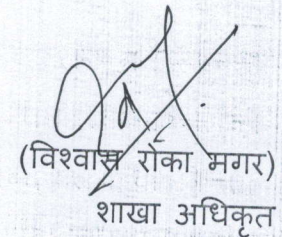 (विश्वास रोका मगर)
शाखा अधिकृत